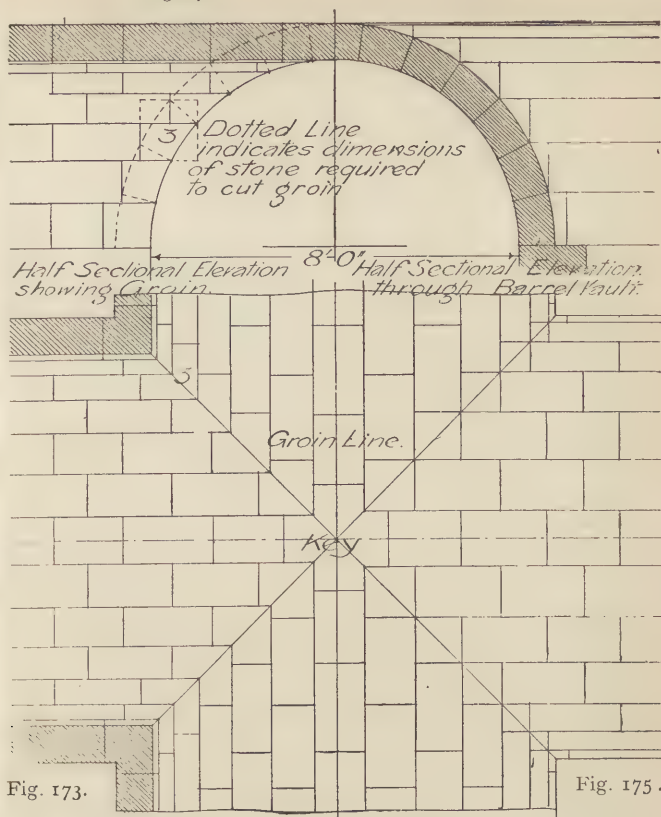 3 Dotted Line
indicates dimensions
of stone required
to cut groin
8'-0"
Half Sectional Elevation
showing Groin.
Half Sectional Elevation.
through Barrel Vault.
3
Groin Line.
Key
Fig. 173.
Fig. 175.